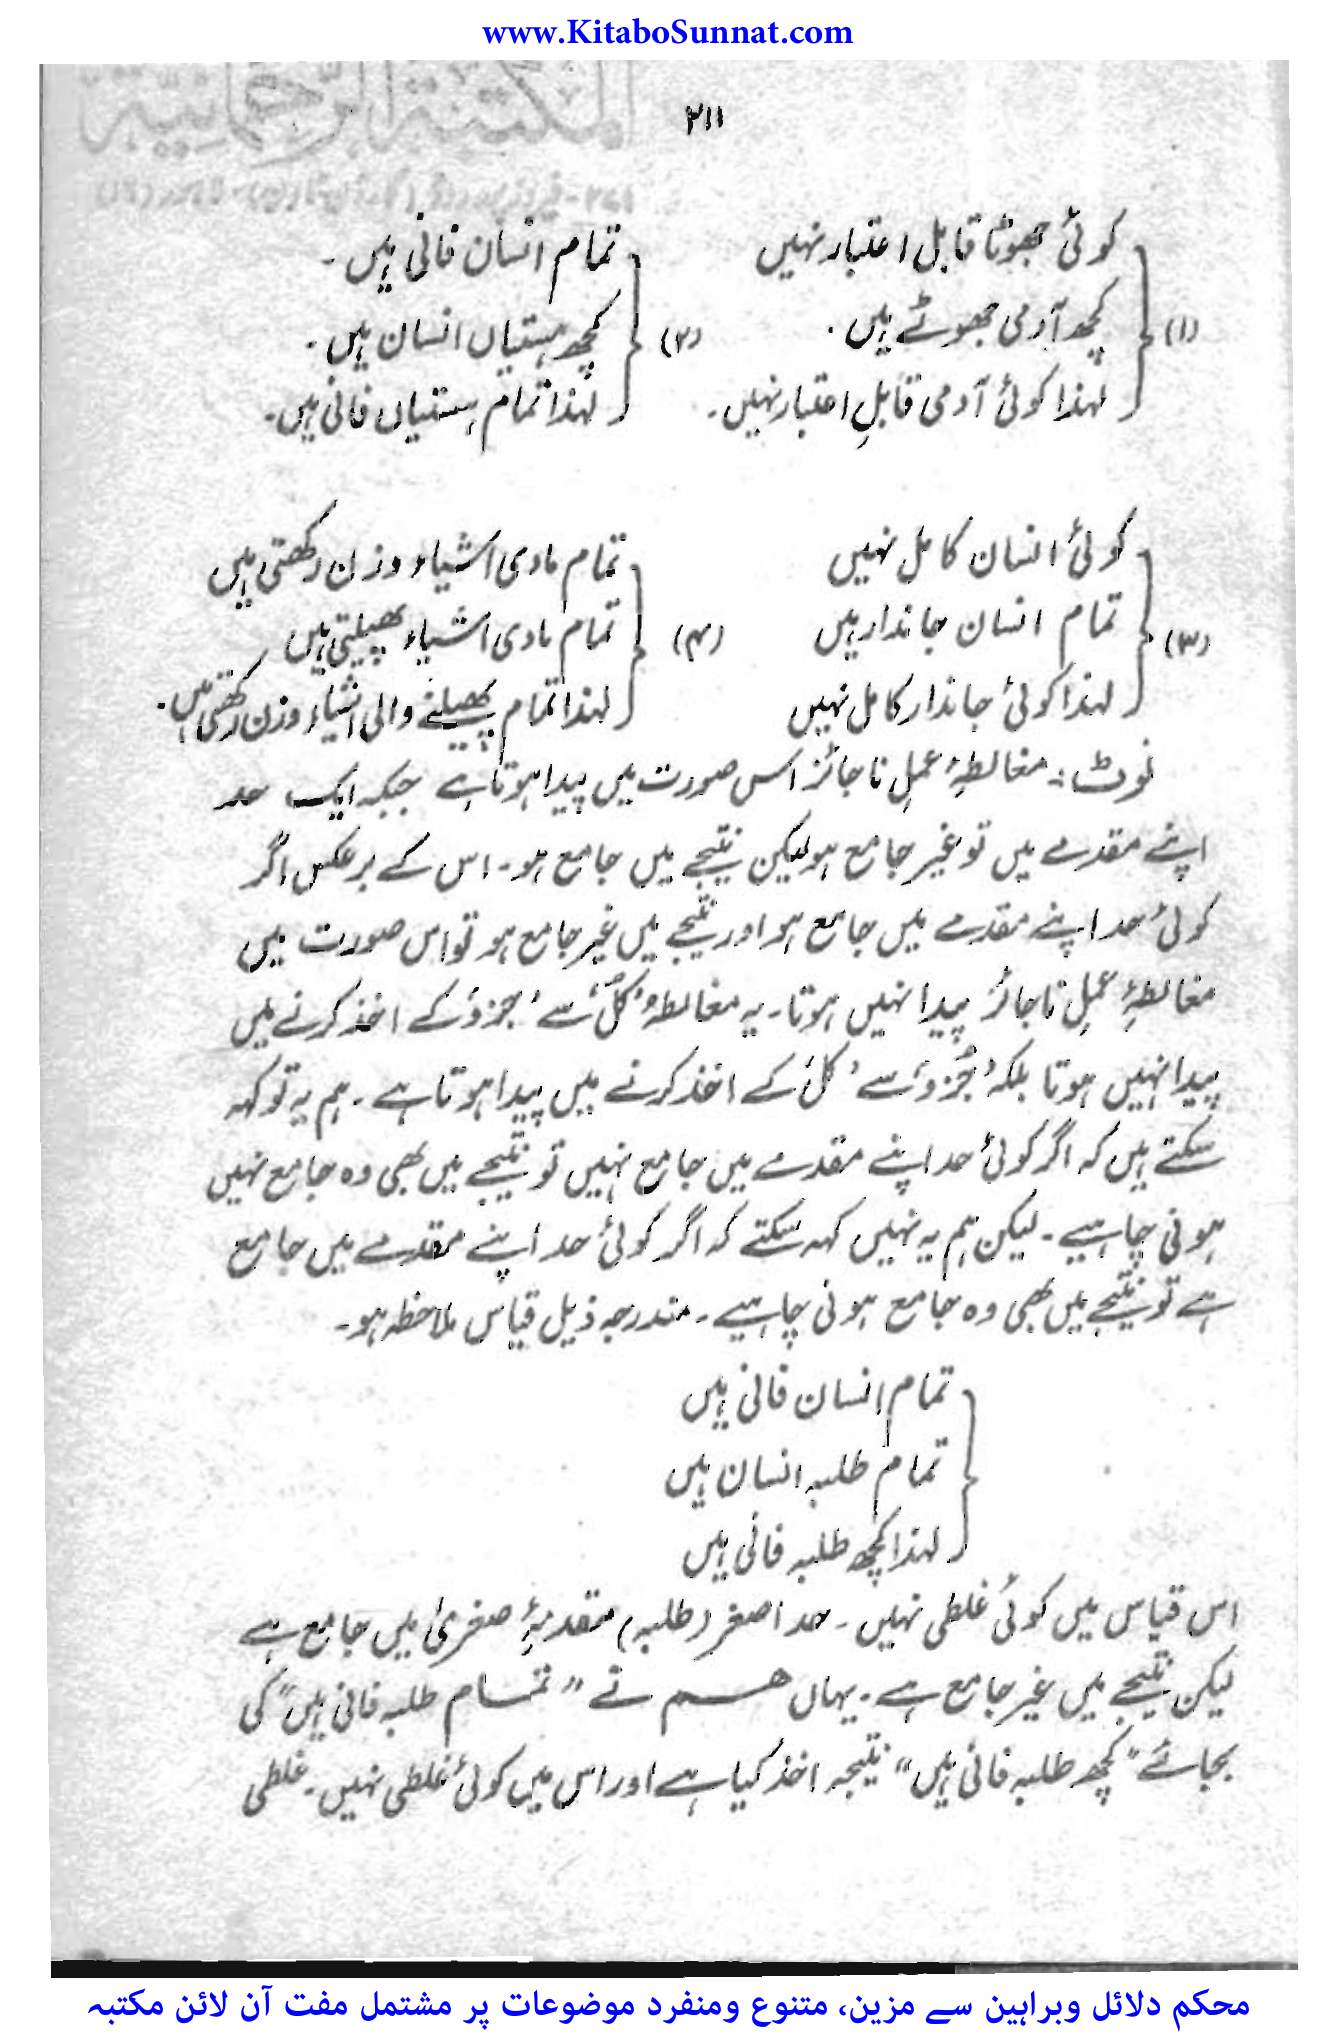 www.KitaboSunnat.com
۲۱۱
(۱)
کوئی جھوٹا قابل اعتبار نہیں
کچھ آدمی جھوٹے ہیں۔
لہٰذا کوئی آدمی قابلِ اعتبار نہیں۔
(۲)
تمام انسان فانی ہیں۔
کچھ ہستیاں انسان ہیں۔
لہٰذا تمام ہستیاں فانی ہیں۔
(۳)
کوئی انسان کامل نہیں
تمام انسان جاندار ہیں
لہٰذا کوئی جاندار کامل نہیں
(۴)
تمام مادی اشیاء وزن رکھتی ہیں
تمام مادی اشیاء پھیلتی ہیں
لہٰذا تمام پھیلنے والی اشیاء وزن رکھتی ہیں۔
نوٹ: مغالطۂ عملِ ناجائز اس صورت میں پیدا ہوتا ہے جبکہ ایک حد
اپنے مقدمے میں تو غیر جامع ہو لیکن نتیجے میں جامع ہو۔ اس کے برعکس اگر
کوئی حد اپنے مقدمے میں جامع ہو اور نتیجے میں غیر جامع ہو تو اس صورت میں
مغالطۂ عملِ ناجائز پیدا نہیں ہوتا۔ یہ مغالطہ ’کُل‘ سے ’جزو‘ کے اخذ کرنے میں
پیدا نہیں ہوتا بلکہ ’جُزو‘ سے ’کل‘ کے اخذ کرنے میں پیدا ہوتا ہے۔ ہم یہ تو کہہ
سکتے ہیں کہ اگر کوئی حد اپنے مقدمے میں جامع نہیں تو نتیجے میں بھی وہ جامع نہیں
ہونی چاہیے۔ لیکن ہم یہ نہیں کہہ سکتے کہ اگر کوئی حد اپنے مقدمے میں جامع
ہے تو نتیجے میں بھی وہ جامع ہونی چاہیے۔ مندرجہ ذیل قیاس ملاحظہ ہو۔
تمام انسان فانی ہیں
تمام طلبہ انسان ہیں
لہٰذا کچھ طلبہ فانی ہیں
اس قیاس میں کوئی غلطی نہیں۔ حد اصغر (طلبہ) مقدمۂ صغریٰ میں جامع ہے
لیکن نتیجے میں غیر جامع ہے۔ یہاں ہم نے ”تمام طلبہ فانی ہیں“ کی
بجائے ”کچھ طلبہ فانی ہیں“ نتیجہ اخذ کیا ہے اور اس میں کوئی غلطی نہیں۔ غلطی
محکم دلائل وبراہین سے مزین، متنوع ومنفرد موضوعات پر مشتمل مفت آن لائن مکتبہ